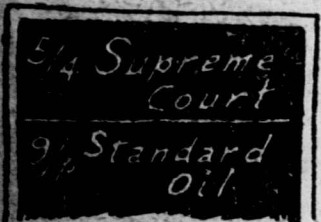 5/4 Supreme
Court
Standard
Oil